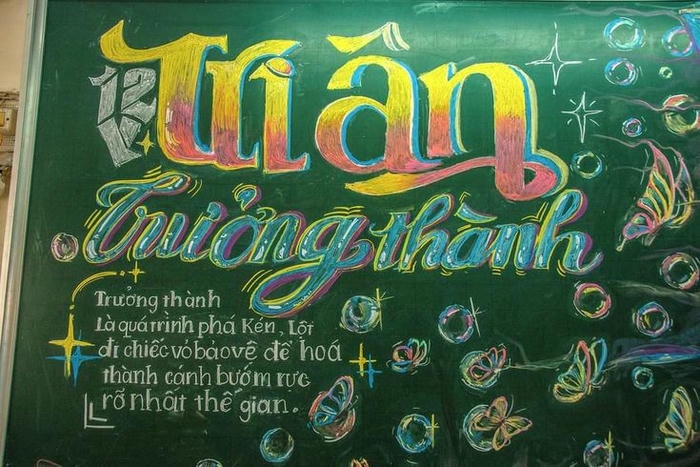 12
V
Tri ân
Trưởng thành
Trưởng thành
Là quá trình phá kén, lột
đi chiếc vỏ bảo vệ để hoá
thành cánh bướm rực
rỡ nhất thế gian.